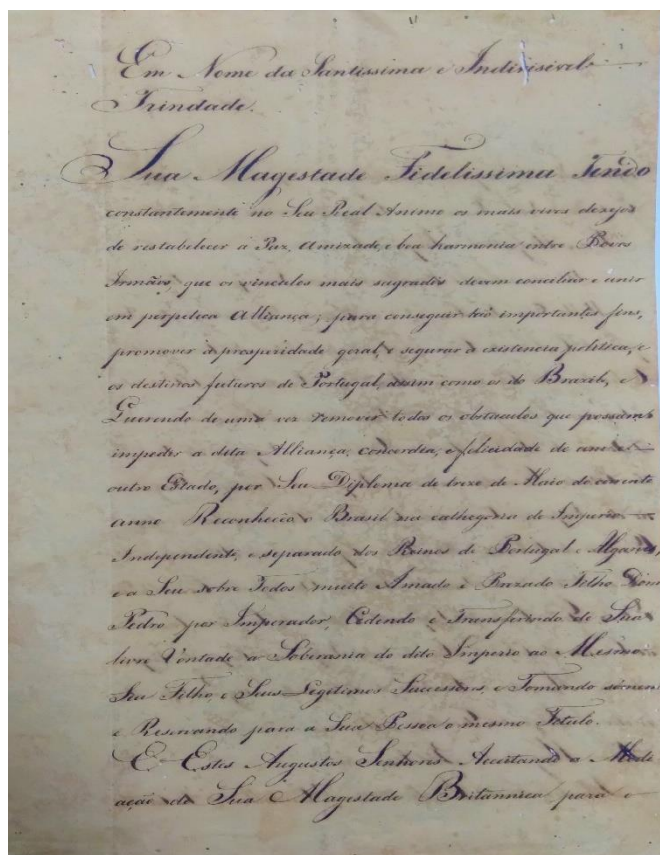 Em Nome da Santissima e Indivisivel
Trindade.
Sua Magestade Fidelissima Tendo
constantemente no Seu Real Animo os mais vivos dezejos
de restabelecer a Paz, Amizade, e boa harmonia entre Povos
Irmãos, que os vinculos mais sagrados devem conciliar e unir
em perpetua Alliança; para conseguir tão importantes fins,
promover a prosperidade geral, e segurar a existencia politica, e
os destinos futuros de Portugal, assim como os do Brazil, e
Querendo de uma vez remover todos os obstaculos que possam
impedir a dita Alliança, concordia, e felicidade de um e
outro Estado, por Seu Diploma de treze de Maio do corrente
anno Reconheceo o Brasil na cathegoria de Imperio
Independente, e separado dos Reinos de Portugal e Algarves,
e a Seu sobre Todos muito Amado e Prezado Filho Dom
Pedro por Imperador, Cedendo e Transferindo de Sua
livre Vontade a Soberania do dito Imperio ao Mesmo
Seu Filho, e Seus Legitimos Sucessores, e Tomando sómen
e Reservando para a Sua Pessoa o mesmo Titulo.
E Estes Augustos Senhores Aceitando a Medi
ação de Sua Magestade Britannica para o